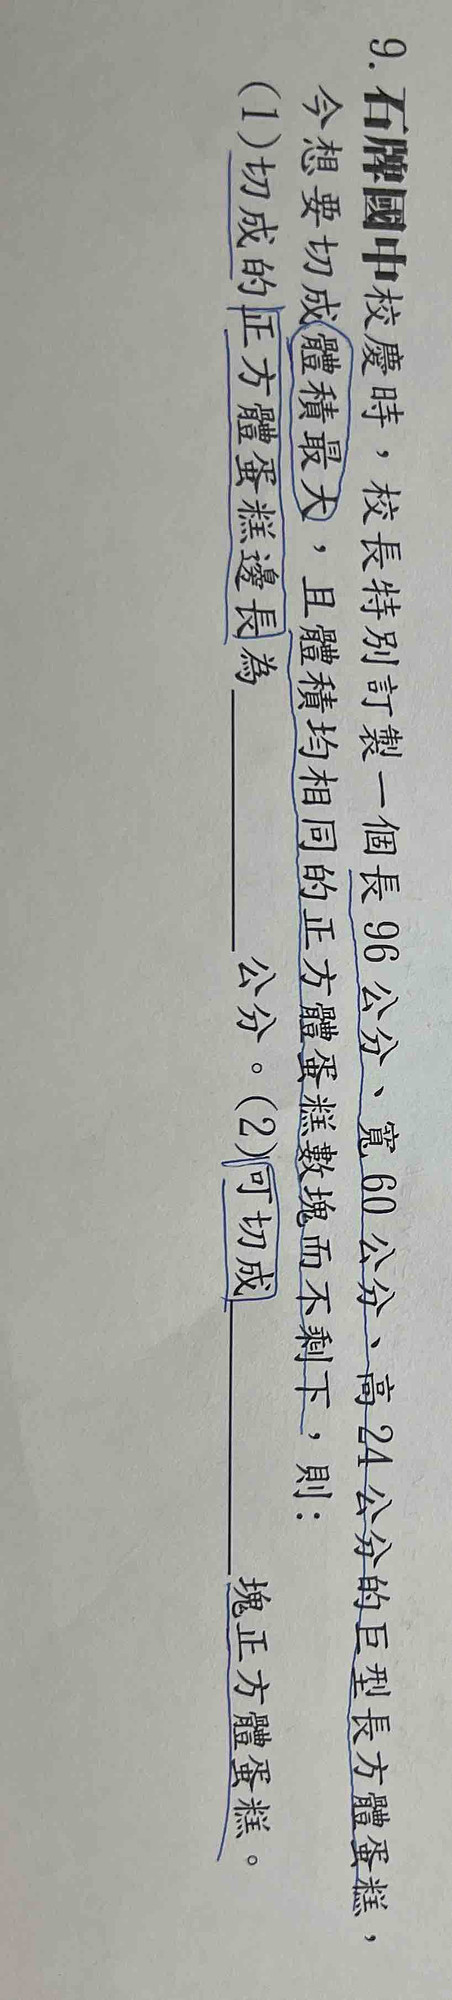 9. 石牌國中校慶時，校長特別訂製一個長 96 公分、寬 60 公分、高 24 公分的巨型長方體蛋糕，
今想要切成體積最大，且體積均相同的正方體蛋糕數塊而不剩下，則：
(1)切成的正方體蛋糕邊長為＿＿＿＿公分。(2)可切成＿＿＿＿塊正方體蛋糕。